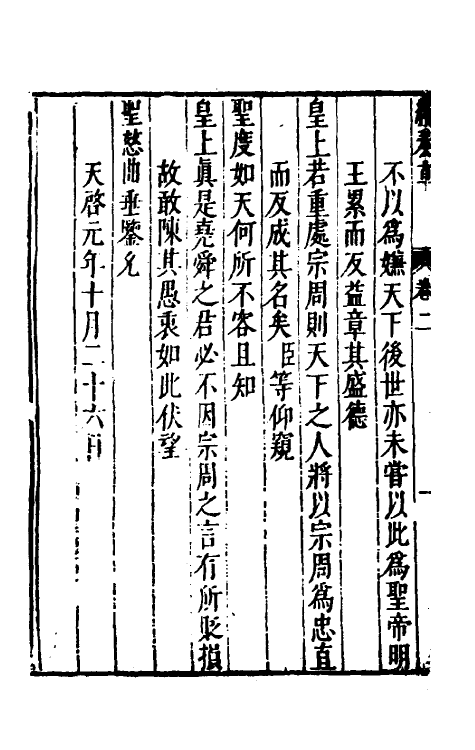 卷二
不以為嫌天下後世亦未嘗以此為聖帝明
王累而反益章其盛德
皇上若重處宗周則天下之人將以宗周為忠直
而反成其名矣臣等仰窺
聖度如天何所不容且知
皇上真是堯舜之君必不因宗周之言有所貶損
故敢陳其愚衷如此伏望
聖慈曲垂鑒允
天啓元年十月二十六日